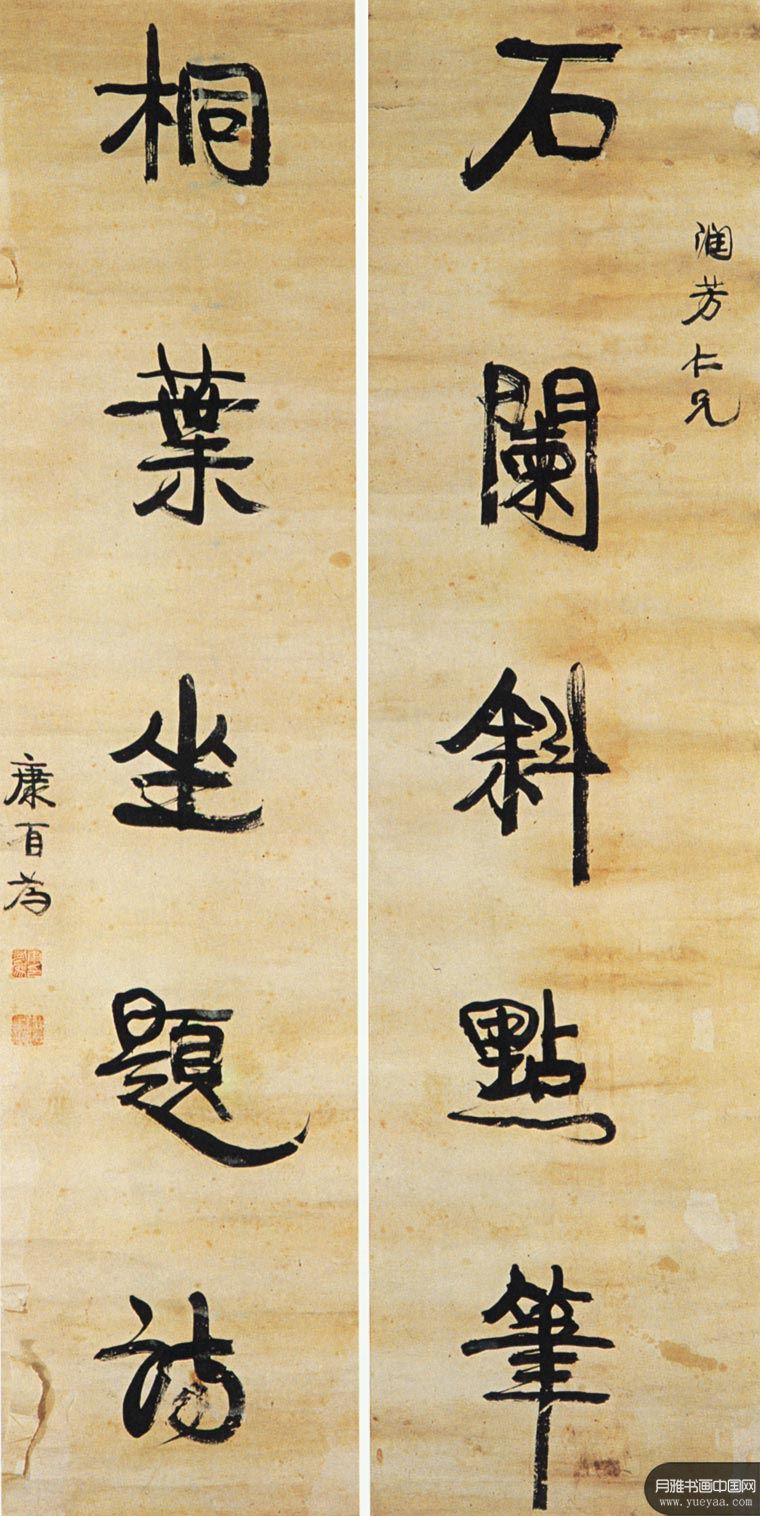 石闌斜點筆
潤芳仁兄
桐葉坐題詩
康有為
月雅书画中国网
www.yueyaa.com